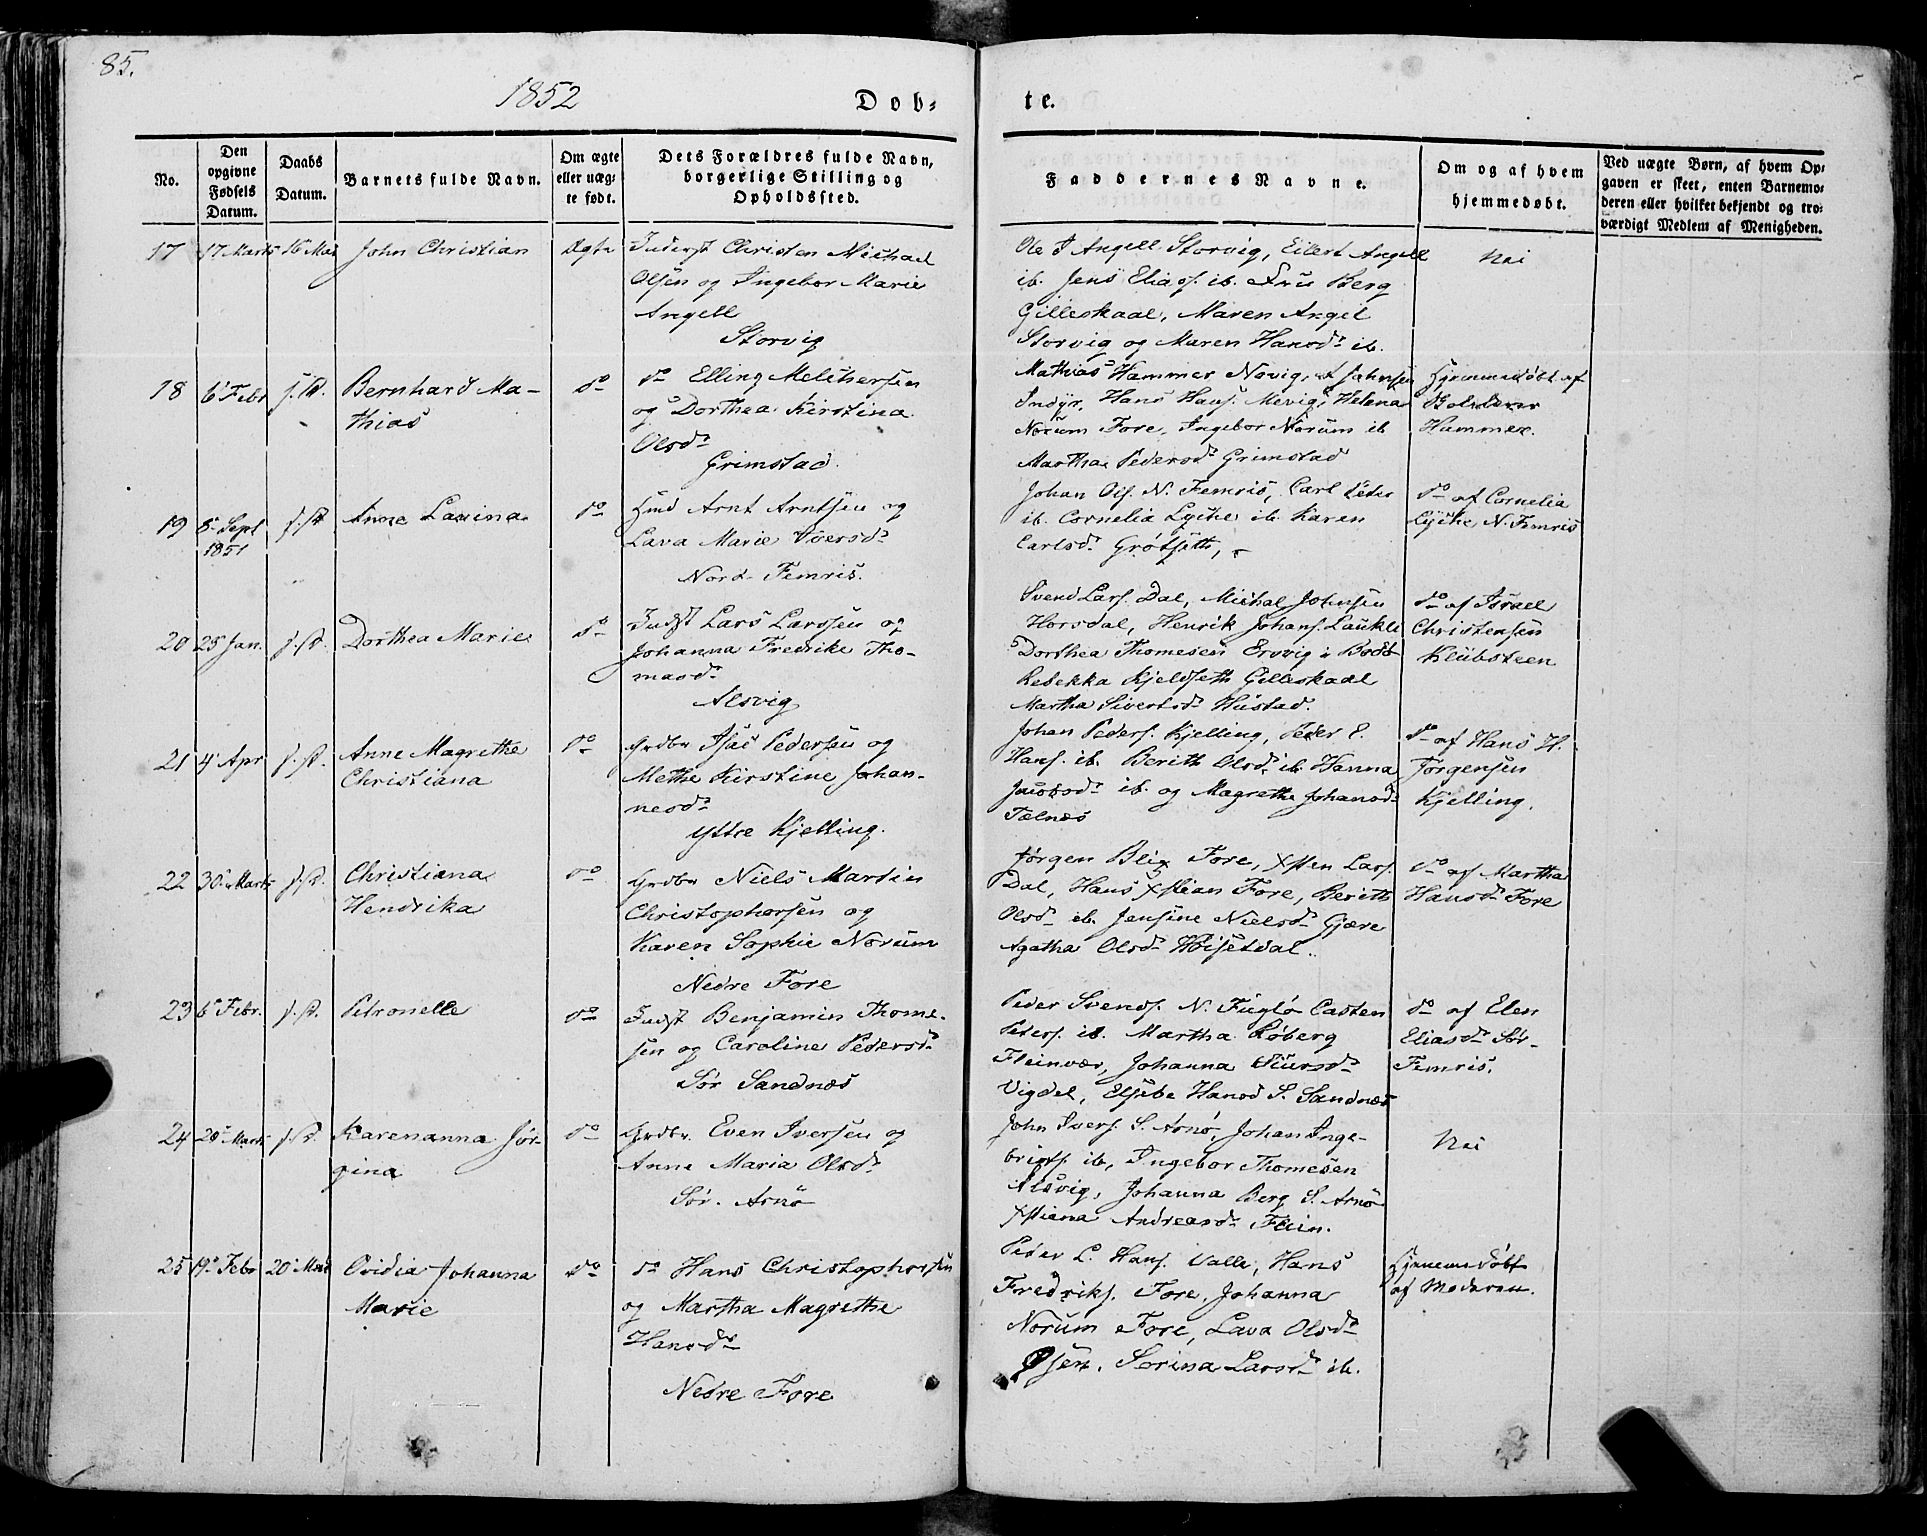 85.
1852
Dob-
te.
No.
Den opgivne Fødsels Datum.
Daabs Datum.
Barnets fulde Navn.
Om ægte eller uægte født.
Dets Forældres fulde Navn, borgerlige Stilling og Opholdssted.
Faddernes Navne.
Om og af hvem hjemmedøbt.
Ved uægte Børn, af hvem Opgaven er skeet, enten Barnemoderen eller hvilket bekjendt og troværdigt Medlem af Menigheden.
17
17 Marts
16 Mai
John Christian
Ægte
Inderst Christen Michael
Olsen og Ingebor Marie
Angell
Storvig
Ole J Angell Storvig, Eilert Angell
ib. Jens Elias. ib. Fru Berg
Gilleskaal, Maren Angel
Storvig og Maren Hansd. ib.
Nei
18
6 Febr
s. D.
Bernhard Ma-
thias
do
do Elling Melchersen
og Dorthea Kirstina
Olsd.
Grimstad.
Mathias Hammer Novig, Johnsen
Indyr, Hans Hans. Mevig, Helena
Norum Fore, Ingebor Norum ib
Martha Pedersd. Grimstad
Hjemmedøbt af
Hammer.
19
8 Sept
1851
s. D.
Anne Lavina
do
Hmd Arnt Arntsen og
Lava Marie Iversd.
Nord-Femris.
Johan Ols. N. Femris, Carl Peder
ib. Cornelia Lyche ib. Karen
Carlsd. Grötseth,
do af Cornelia
Lyche N. Femris
20
25 Jan.
s. D.
Dorthea Marie
do
Indst Lars Larssen og
Johanna Fredrike Tho-
masd.
Alsvig
Svend Lars. Dal, Michal Johnsen
Horsdal, Henrik Johans. Laukli
Dorthea Thomesen Ersvig i Bodö
Rebekka Kjeldseth Gilleskaal
Martha Sivertsd. Hustad.
do af Israel
Christensen
Klubsteen
21
4 Apr
s. D.
Anne Magrethe
Christiana
do
Grdbr Isac Pedersen og
Methe Kirstine Johan-
nesd.
Yttre Kjelling.
Johan Peders. Kjelling, Peder E.
Hans. ib. Berith Olsd. ib. Hanna
Jacobsd. ib. og Magrethe Johansd.
Tælnæs
do af Hans H.
Jørgensen
Kjelling.
22
30 Marts
s. D.
Christiana
Hendrika
do
Grdbr Niels Martin
Christophersen og
Karen Sophie Norum
Nedre Fore
Jørgen Blix Fore, Xsten Lars.
Dal, Hans Xstian Fore, Berith
Olsd. ib. Jensine Nielsd. Gjære
Agatha Olsd. Höisetdal.
do af Martha
Hansd. Fore
23
6 Febr.
s. D.
Petronelle
do
Indst Benjamin Thome-
sen og Caroline Pedersd.
Sør Sandnæs
Peder Svends. N. Fuglö Casten
Peders. ib. Martha Röberg
Fleinvær, Johanna Siursd.
Vigdel, Elsebe Hansd S. Sandnæs
do af Elen
Eliasd. Sör-
Femris.
24
28 Marts
s. D.
Karenanna Jør-
gina
do
Grdbr. Even Iversen og
Anne Maria Olsd.
Sör. Arnö
John Ivers. S. Arnö, Johan Inge-
brigts. ib, Ingebor Thomesen
Alsvig, Johanna Berg S. Arnö
Xstiana Andreasd. Flein.
Nei
25
19 Febr
20 Mai
Ovidia Johanna
Marie
do
do Hans Christophersen
og Martha Magrethe
Hansd.
Nedre Fore
Peder L. Hans. Valle, Hans
Fredriks. Fore, Johanna
Norum Fore, Lava Olsd.
Øsen. Sorina Larsd. ib.
Hjemmedøbt
af Moderen.